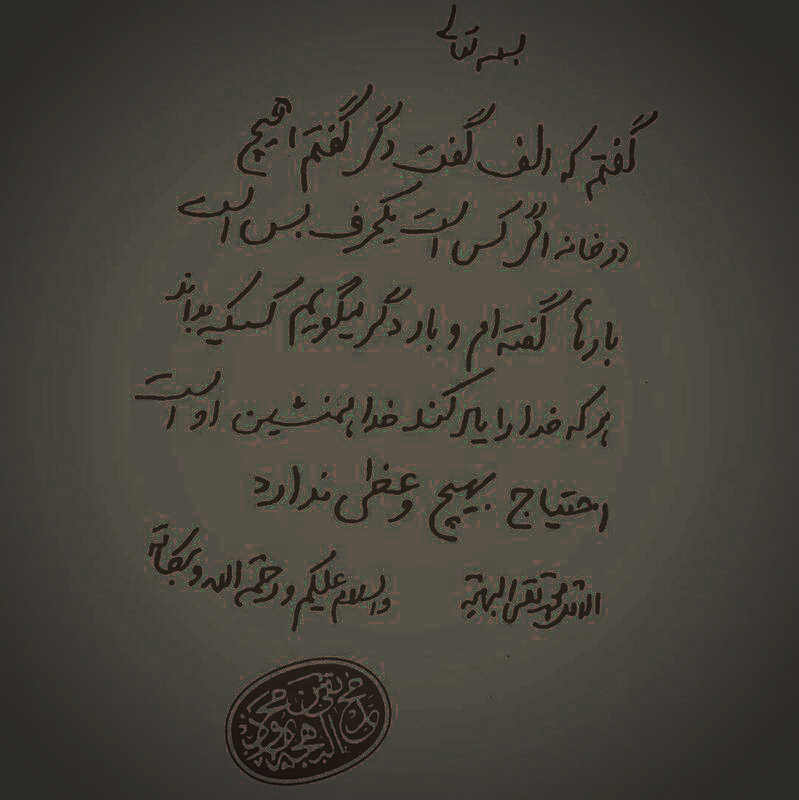 بسمه تعالی
گفتم که الف گفت دگر گفتم هیچ
در خانه اگر کس است یکحرف بس است
بارها گفته ام و بار دگر میگویم کسیکه بداند
هر که خدا را یاد کند خدا همنشین او است
احتیاج بهیچ وعظی ندارد
الاقل محمد تقی البهجة والسلام علیکم و رحمة الله و برکاته
محمد تقی